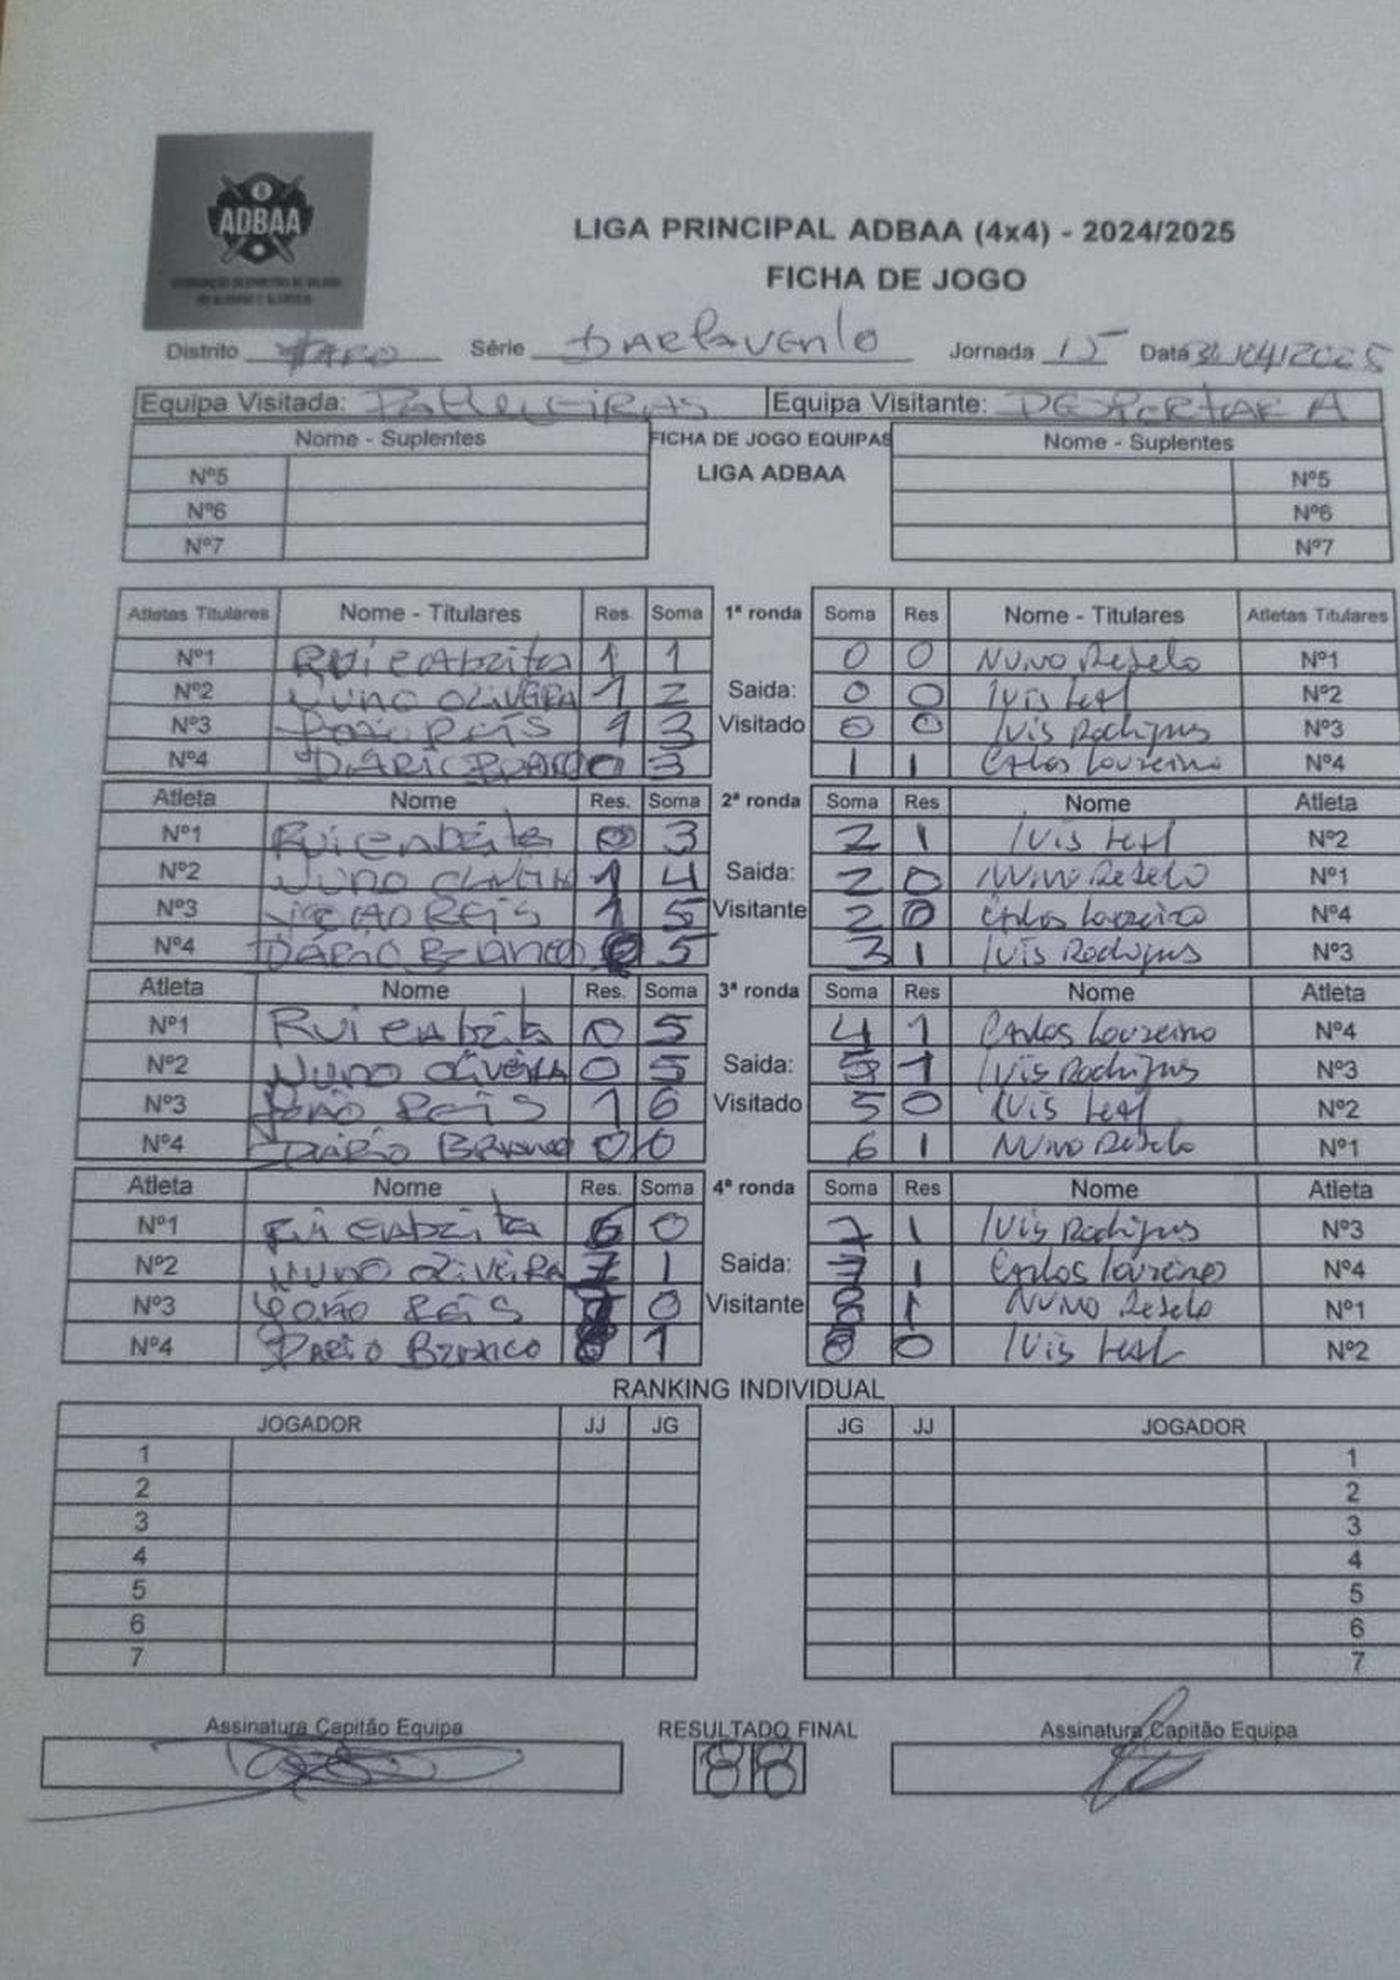 ADBAA
LIGA PRINCIPAL ADBAA (4x4) - 2024/2025
FICHA DE JOGO
Distrito FARO Série Barlavento Jornada 15 Data
Equipa Visitada: Equipa Visitante:
Nome - Suplentes FICHA DE JOGO EQUIPAS Nome - Suplentes
LIGA ADBAA
Nº5 Nº5
Nº6 Nº6
Nº7 Nº7
Atletas Titulares Nome - Titulares Res. Soma 1ª ronda Soma Res Nome - Titulares Atletas Titulares
Nº1 Rui 1 1 0 0 Nuno Nº1
Nº2 Nuno Oliveira 1 2 Saida: 0 0 luis leal Nº2
Nº3 João Reis 1 3 Visitado 0 0 luis Rodrigues Nº3
Nº4 Dário Branco 0 3 1 1 Carlos loureiro Nº4
Atleta Nome Res. Soma 2ª ronda Soma Res Nome Atleta
Nº1 Rui 0 3 2 1 luis leal Nº2
Nº2 Nuno Oliveira 1 4 Saida: 2 0 Nuno Nº1
Nº3 João Reis 1 5 Visitante 2 0 Carlos loureiro Nº4
Nº4 Dário Branco 5 3 1 luis Rodrigues Nº3
Atleta Nome Res. Soma 3ª ronda Soma Res Nome Atleta
Nº1 Rui 0 5 4 1 Carlos loureiro Nº4
Nº2 Nuno Oliveira 0 5 Saida: 5 1 luis Rodrigues Nº3
Nº3 João Reis 1 6 Visitado 5 0 luis leal Nº2
Nº4 Dário Branco 0 6 6 1 Nuno Nº1
Atleta Nome Res. Soma 4ª ronda Soma Res Nome Atleta
Nº1 Rui 6 0 7 1 luis Rodrigues Nº3
Nº2 Nuno Oliveira 7 1 Saida: 1 Carlos loureiro Nº4
Nº3 João Reis 7 0 Visitante 8 1 Nuno Nº1
Nº4 Dario Branco 8 1 8 0 luis leal Nº2
RANKING INDIVIDUAL
JOGADOR JJ JG JG JJ JOGADOR
1 1
2 2
3 3
4 4
5 5
6 6
7 7
Assinatura Capitão Equipa RESULTADO FINAL Assinatura Capitão Equipa
8 8